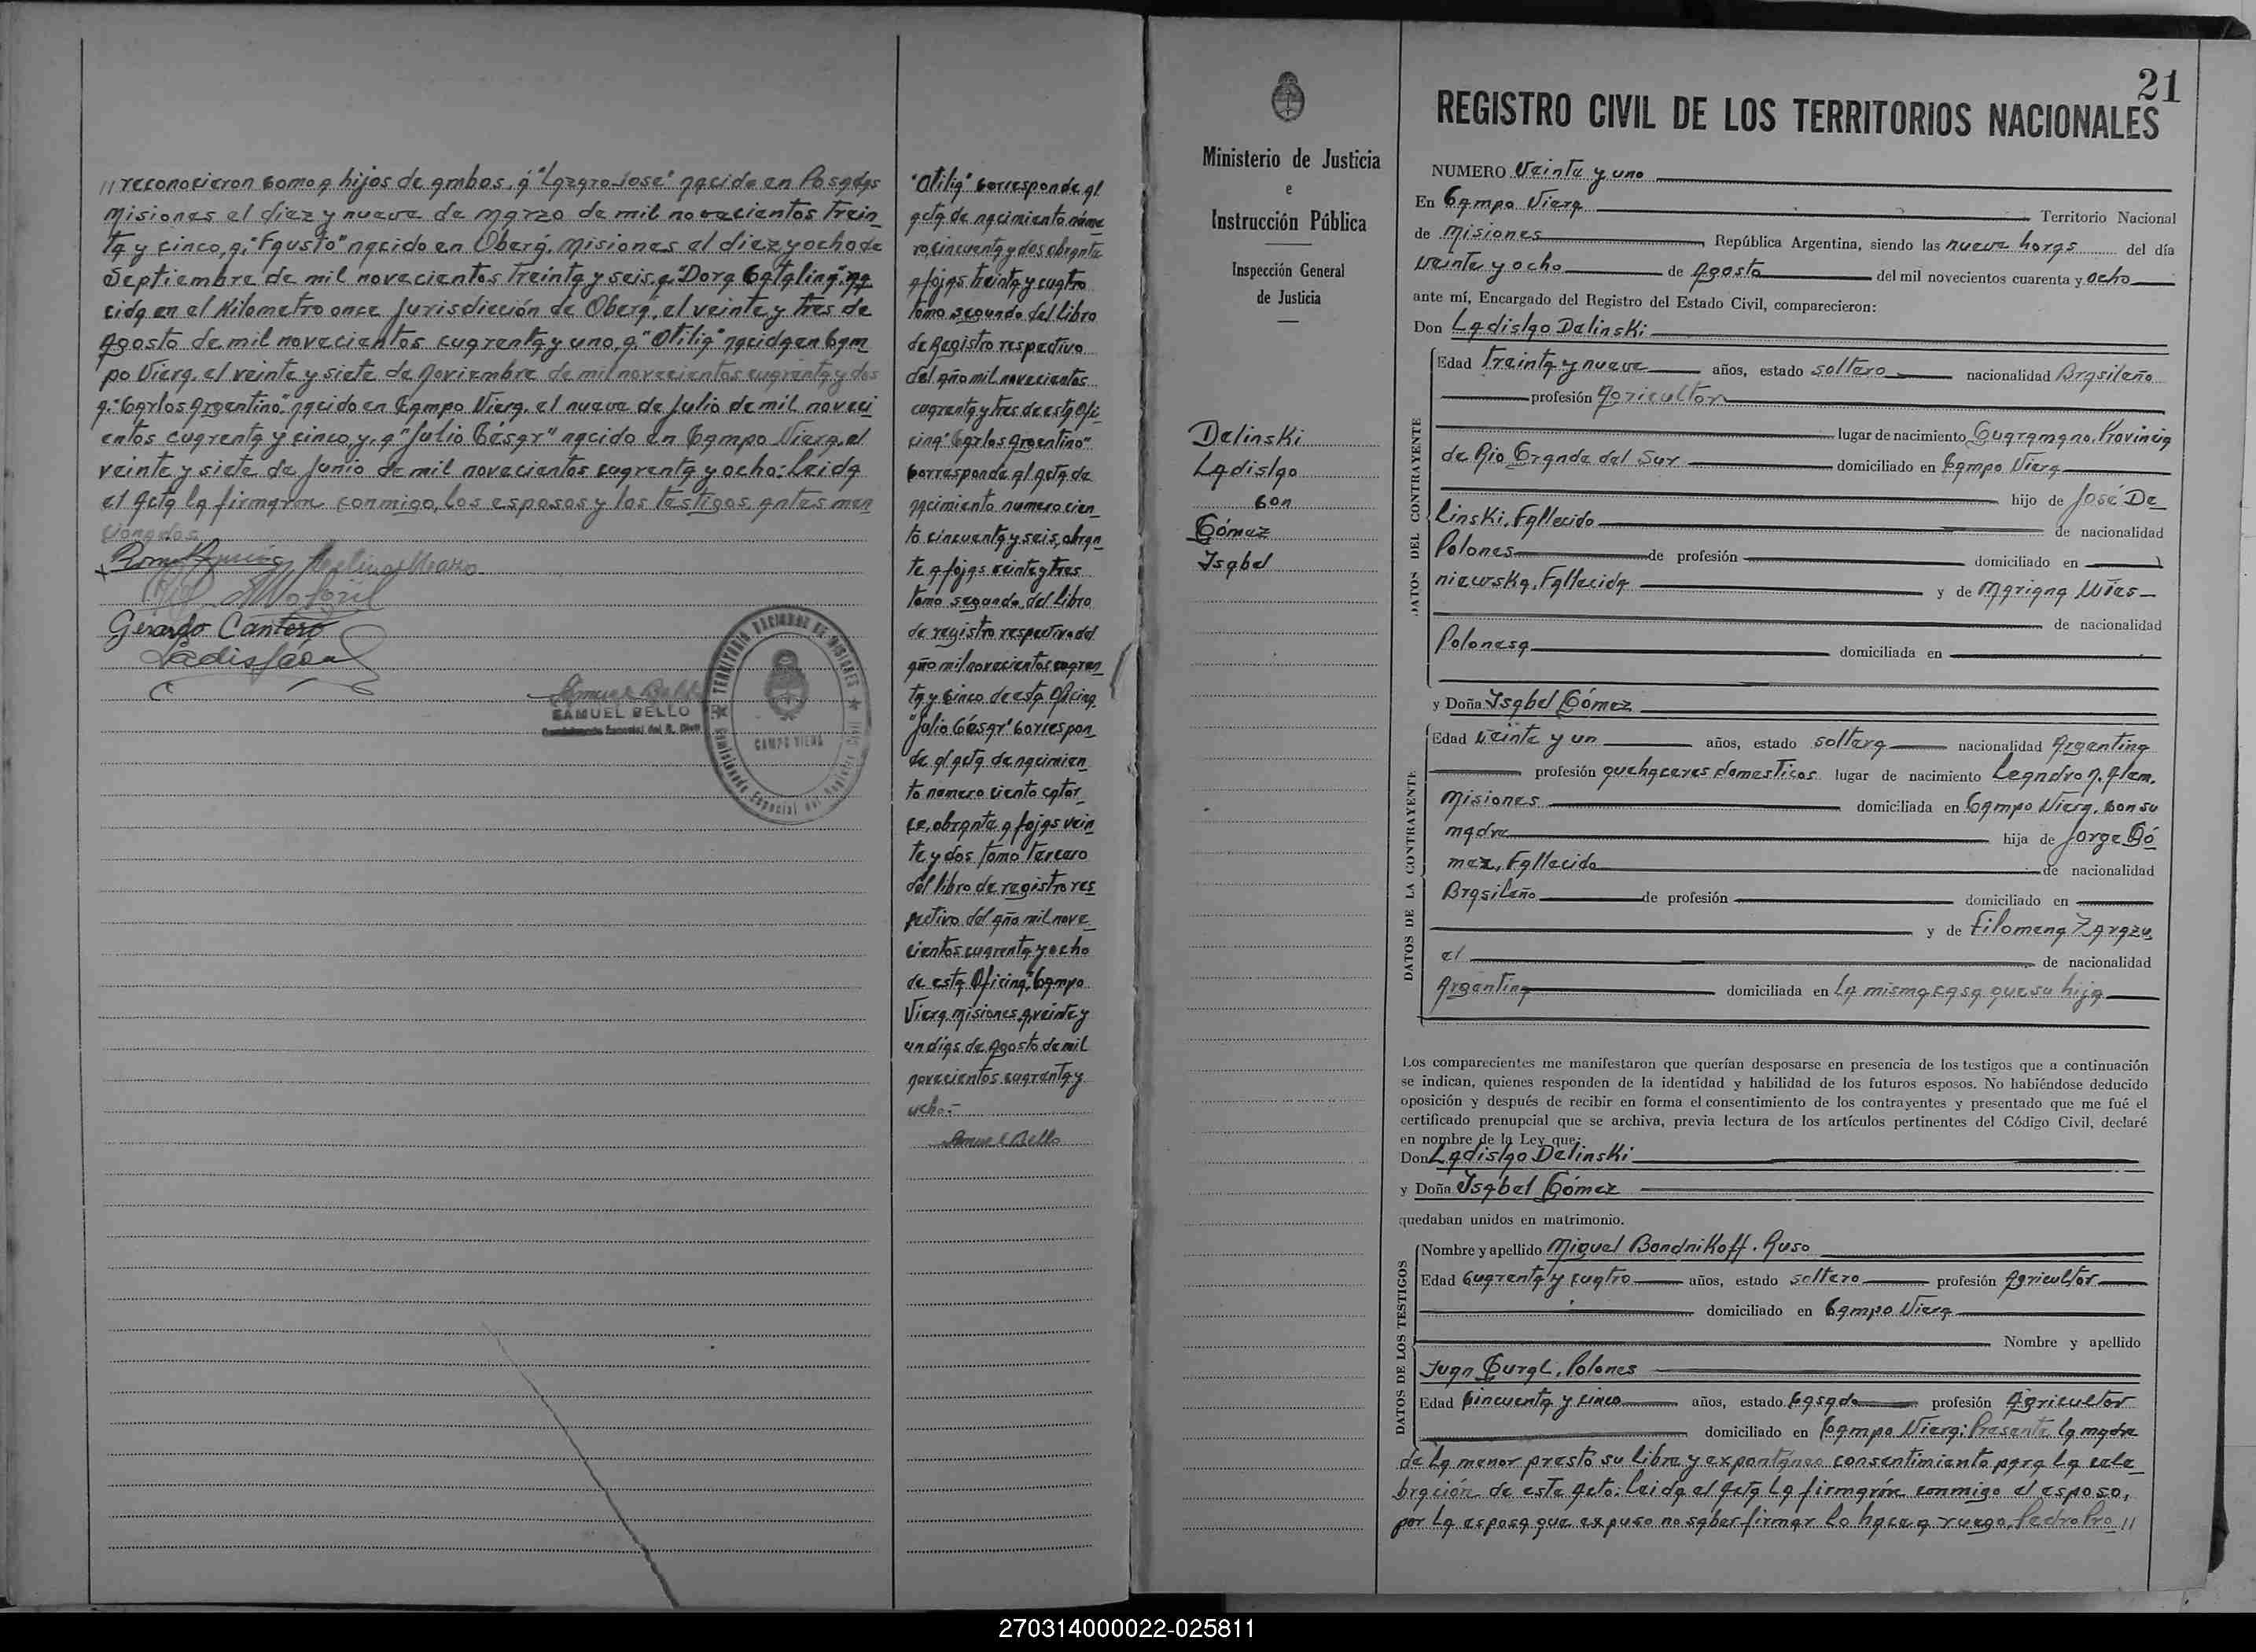 // reconocieron como a hijos de ambos, á "Lazaro Jose" nacido en Posadas
Misiones el diez y nueve de Marzo de mil novecientos trein_
ta y cinco, a, "Fausto" nacido en Oberá, Misiones el diez y ocho de
Septiembre de mil novecientos treinta y seis, a "Dora Catalina", na_
cida en el Kilometro once Jurisdicción de Oberá, el veinte y tres de
Agosto de mil novecientos cuarenta y uno, a, "Otilia" nacida en Cam_
po Viera, el veinte y siete de Noviembre de mil novecientos cuarenta y dos
a, "Carlos Argentino" nacido en Campo Viera, el nueve de Julio de mil noveci
entos cuarenta y cinco, y, a "Julio César" nacido en Campo Viera, el
veinte y siete de Junio de mil novecientos cuarenta y ocho: Leida
el acta la firmaron conmigo, los esposos y los testigos antes men_
cionados
Gerardo Cantero
Samuel Bello
SAMUEL BELLO
Comisionado Especial del R. Civil
TERRITORIO NACIONAL DE MISIONES
CAMPO VIERA
Comisionado Especial del Registro Civil
"Otilia" corresponde al
acta de nacimiento núme_
ro, cincuenta y dos obrante
a fojas treinta y cuatro
tomo segundo del Libro
de Registro respectivo
del año mil novecientos
cuarenta y tres de esta Ofi_
cina "Carlos Argentino"
corresponde al acta de
nacimiento numero cien_
to cincuenta y seis, obran_
te a fojas veinte y tres
tomo segundo del libro
de registro respectivo del
año mil novecientos cuaren_
ta y cinco de esta Oficina
"Julio César" correspon_
de al acta de nacimien_
to numero ciento cator_
ce, obrante a fojas vein_
te y dos tomo tercero
del libro de registro res_
pectivo del año mil nove_
cientos cuarenta y ocho
de esta Oficina, Campo
Viera, Misiones, a veinte y
un dias de Agosto de mil
novecientos cuarenta y
ocho.-
Samuel Bello
Ministerio de Justicia
e
Instrucción Pública
Inspección General
de Justicia
Delinski
Ladislao
con
Gómez
Isabel
21
REGISTRO CIVIL DE LOS TERRITORIOS NACIONALES
NUMERO Veinte y uno
En Campo Viera Territorio Nacional
de Misiones República Argentina, siendo las nueve horas del día
veinte y ocho de Agosto del mil novecientos cuarenta y ocho
ante mí, Encargado del Registro del Estado Civil, comparecieron:
Don Ladislao Delinski
DATOS DEL CONTRAYENTE
Edad treinta y nueve años, estado soltero nacionalidad Brasileño
profesión Agricultor
lugar de nacimiento Guaramano, Provincia
de Rio Grande del Sur domiciliado en Campo Viera
hijo de José De_
linski, Fallecido de nacionalidad
Polones de profesión domiciliado en
y de Mariana Wies_
niewska, Fallecida de nacionalidad
Polonesa domiciliada en
y Doña Isabel Gómez
DATOS DE LA CONTRAYENTE
Edad veinte y un años, estado soltera nacionalidad Argentina
profesión quehaceres domesticos lugar de nacimiento Leandro N. Alem,
Misiones domiciliada en Campo Viera, con su
madre hija de Jorge Gó_
mez, Fallecido de nacionalidad
Brasileño de profesión domiciliado en
y de Filomena Zarazu_
el de nacionalidad
Argentina domiciliada en La misma casa que su hija
Los comparecientes me manifestaron que querían desposarse en presencia de los testigos que a continuación
se indican, quienes responden de la identidad y habilidad de los futuros esposos. No habiéndose deducido
oposición y después de recibir en forma el consentimiento de los contrayentes y presentado que me fué el
certificado prenupcial que se archiva, previa lectura de los artículos pertinentes del Código Civil, declaré
en nombre de la Ley que:
Don Ladislao Delinski
y Doña Isabel Gómez
quedaban unidos en matrimonio.
DATOS DE LOS TESTIGOS
Nombre y apellido Miguel Bondnikoff. Ruso
Edad Cuarenta y cuatro años, estado soltero profesión Agricultor
domiciliado en Campo Viera
Nombre y apellido
Juan Gural, Polones
Edad Cincuenta y cinco años, estado Casado profesión Agricultor
domiciliado en Campo Viera; Presente la madre
de la menor prestó su libre y expontáneo consentimiento para la cele_
bración de este acto: Leida el acta la firmarón conmigo el esposo,
por la esposa que expuso no saber firmar lo hace a ruego, Pedro Pro //
270314000022-025811